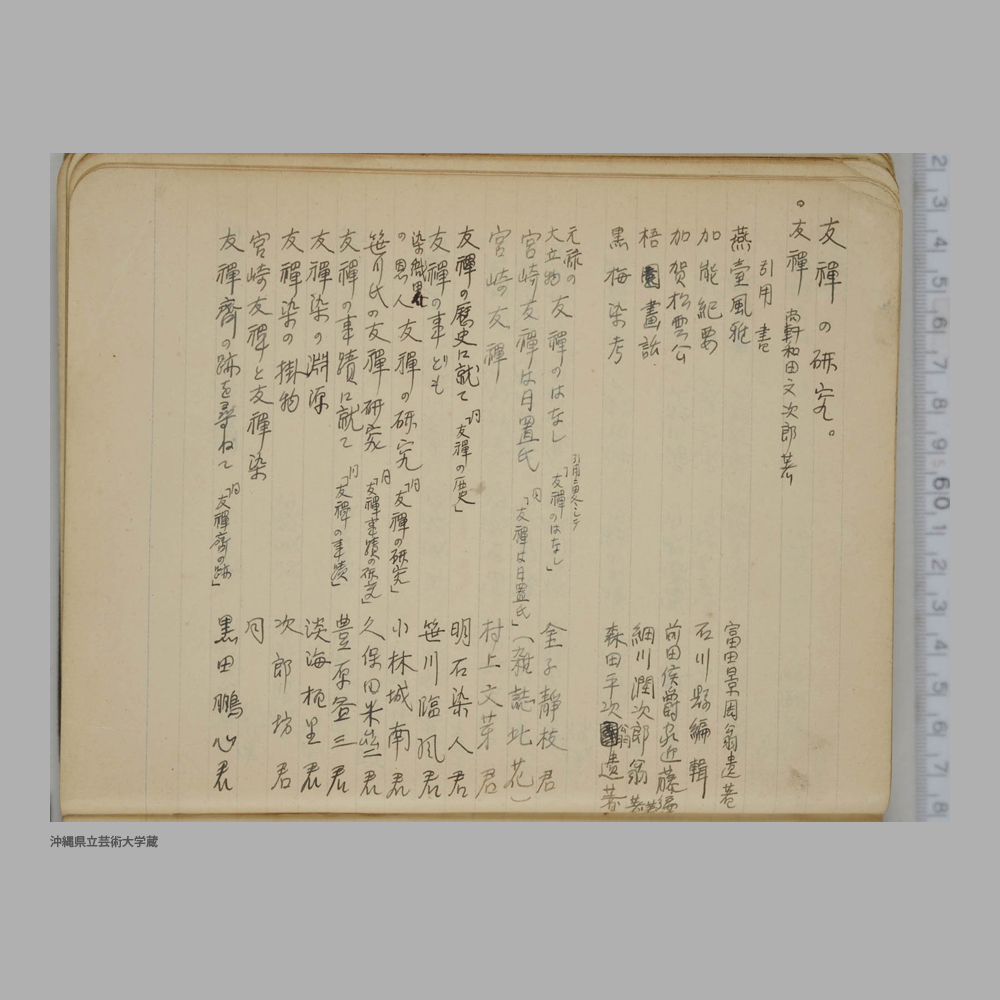 友禪の研究。
。友禪 尚軒和田文次郎著
引用書
燕臺風雅 富田景周翁遺著
加能紀要 石川縣編輯
加賀松雲公 前田侯爵家近藤編
梧園畫話 細川潤次郎翁著
黒梅染考 森田平次翁遺著
元禄の大立物 友禪のはなし 「友禪のはなし」 金子靜枝君
宮崎友禪は日置氏 同「友禪は日置氏」(雑誌此花)
宮崎の友禪 村上文芽君
友禪の歴史に就て 同「友禪の歴史」 明石染人君
友禪の事ども 笹川臨風君
染織界の恩人 友禪の研究 同「友禪の研究」 小林城南君
笹川氏の友禪研究 同「友禪事蹟の研究」 久保田米斎君
友禪の事蹟に就て 同「友禪の事蹟」 豊原
友禪染の淵源 淡海
友禪染の掛物 次郎坊君
宮崎友禪と友禪染 同
友禪齊の跡を尋ねて 同「友禪齊の跡」 黒田鵬心君
2 3 4 5 6 7 8 9 60 1 2 3 4 5 6 7 8
沖縄県立芸術大学蔵